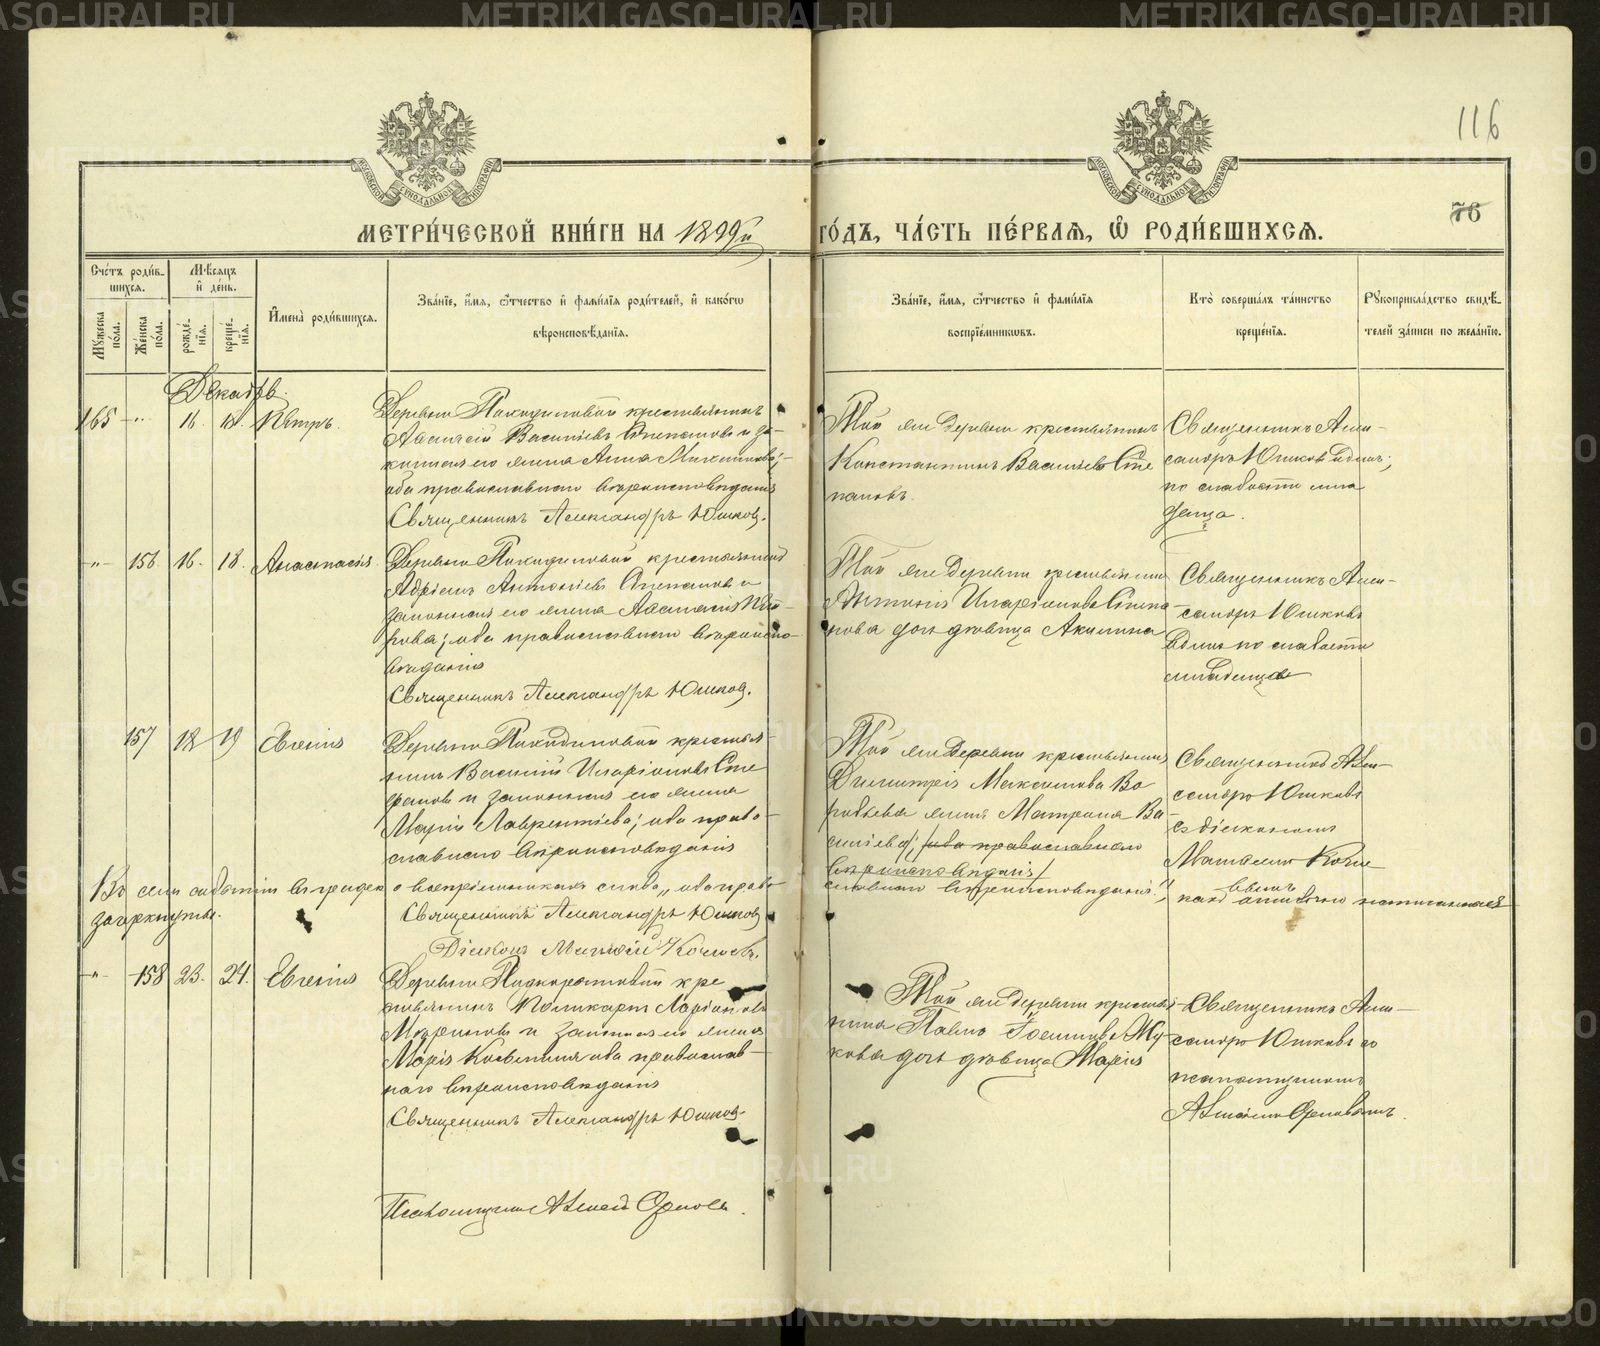 116
76
МЕТРИ́ЧЕСКОЙ КНИ́ГИ НА 1899й ГО́ДЪ, ЧА́СТЬ ПЕ́РВАЯ, Ѽ РОДИ́ВШИХСЯ.
Сче́тъ роди́вшихся.
Мѣ́сяцъ и҆ де́нь.
Мꙋ́жеска по́ла.
Же́нска по́ла.
рожде́нїя.
креще́нїя.
И҆мена̀ роди́вшихся.
Зва́нїе, и҆́мя, ѻ҆́тчество и҆ фами́лїя роди́телей, и҆ како́гѡ
вѣроисповѣ́данїя.
Зва́нїе, и҆́мя, ѻ҆́тчество и҆ фами́лїя
воспрїе́мникѡвъ.
Кто̀ соверша́лъ та́инство
креще́нїя.
Рꙋкоприкла́дство свидѣ́-
телей за́писи по жела́нїю.
Декабрь.
165 -"- 16. 18. Петръ.
Деревни крестьянинъ
Василіевъ Степановъ и за-
конная его жена Анна
оба православнаго вѣроисповѣданія
Священникъ Александръ Юшковъ.
Той же деревни крестьянинъ
Константинъ Василіевъ Сте
пановъ.
Священникъ Алек-
сандръ Юшковъ одинъ,
по слабости мла
денца.
-"- 156 16. 18. Анастасія
Деревни крестьянинъ
Антоніевъ Степановъ и
законная его жена Пет-
рова; оба православнаго вѣроиспо-
вѣданія
Священникъ Александръ Юшковъ.
Той же деревни крестьянина
Антонія Иларіонова Степа
нова дочь дѣвица Акилина
Священникъ Алек-
сандръ Юшковъ
одинъ по слабости
младенца
157 18 19 Евгенія
Деревни крестья-
нинъ Василій Иларіоновъ Сте
пановъ и законная его жена
Марія Лаврентіева; оба право-
славнаго вѣроисповѣданія
Той же деревни крестьянина
Димитрія Максимова Во
робьева жена Матрона Ва-
силіева; /оба православнаго
вѣроисповѣданія/
Священникъ Алек-
сандръ Юшковъ
съ діакономъ
Матѳеемъ Коче
вымъ
Въ сей статьѣ въ графѣ о воспріемникахъ слова „оба право-
славнаго вѣроисповѣданія",
какъ ошибочно написанныя
зачеркнуты.
Священникъ Александръ Юшковъ
Діаконъ Матѳей Кочевъ.
-"- 158 23. 24. Евгенія
Деревни кре
стьянинъ Поликарпъ Ларіоновъ
и законная его жена
Марія оба православ-
наго вѣроисповѣданія
Священникъ Александръ Юшковъ.
Той же деревни крестья-
нина Павла Жу-
кова дочь дѣвица Марія
Священникъ Алек-
сандръ Юшковъ со
псаломщикомъ
Алексѣемъ Орловымъ.
Псаломщикъ Алексѣй Орловъ.
METRIKI.GASO-URAL.RU